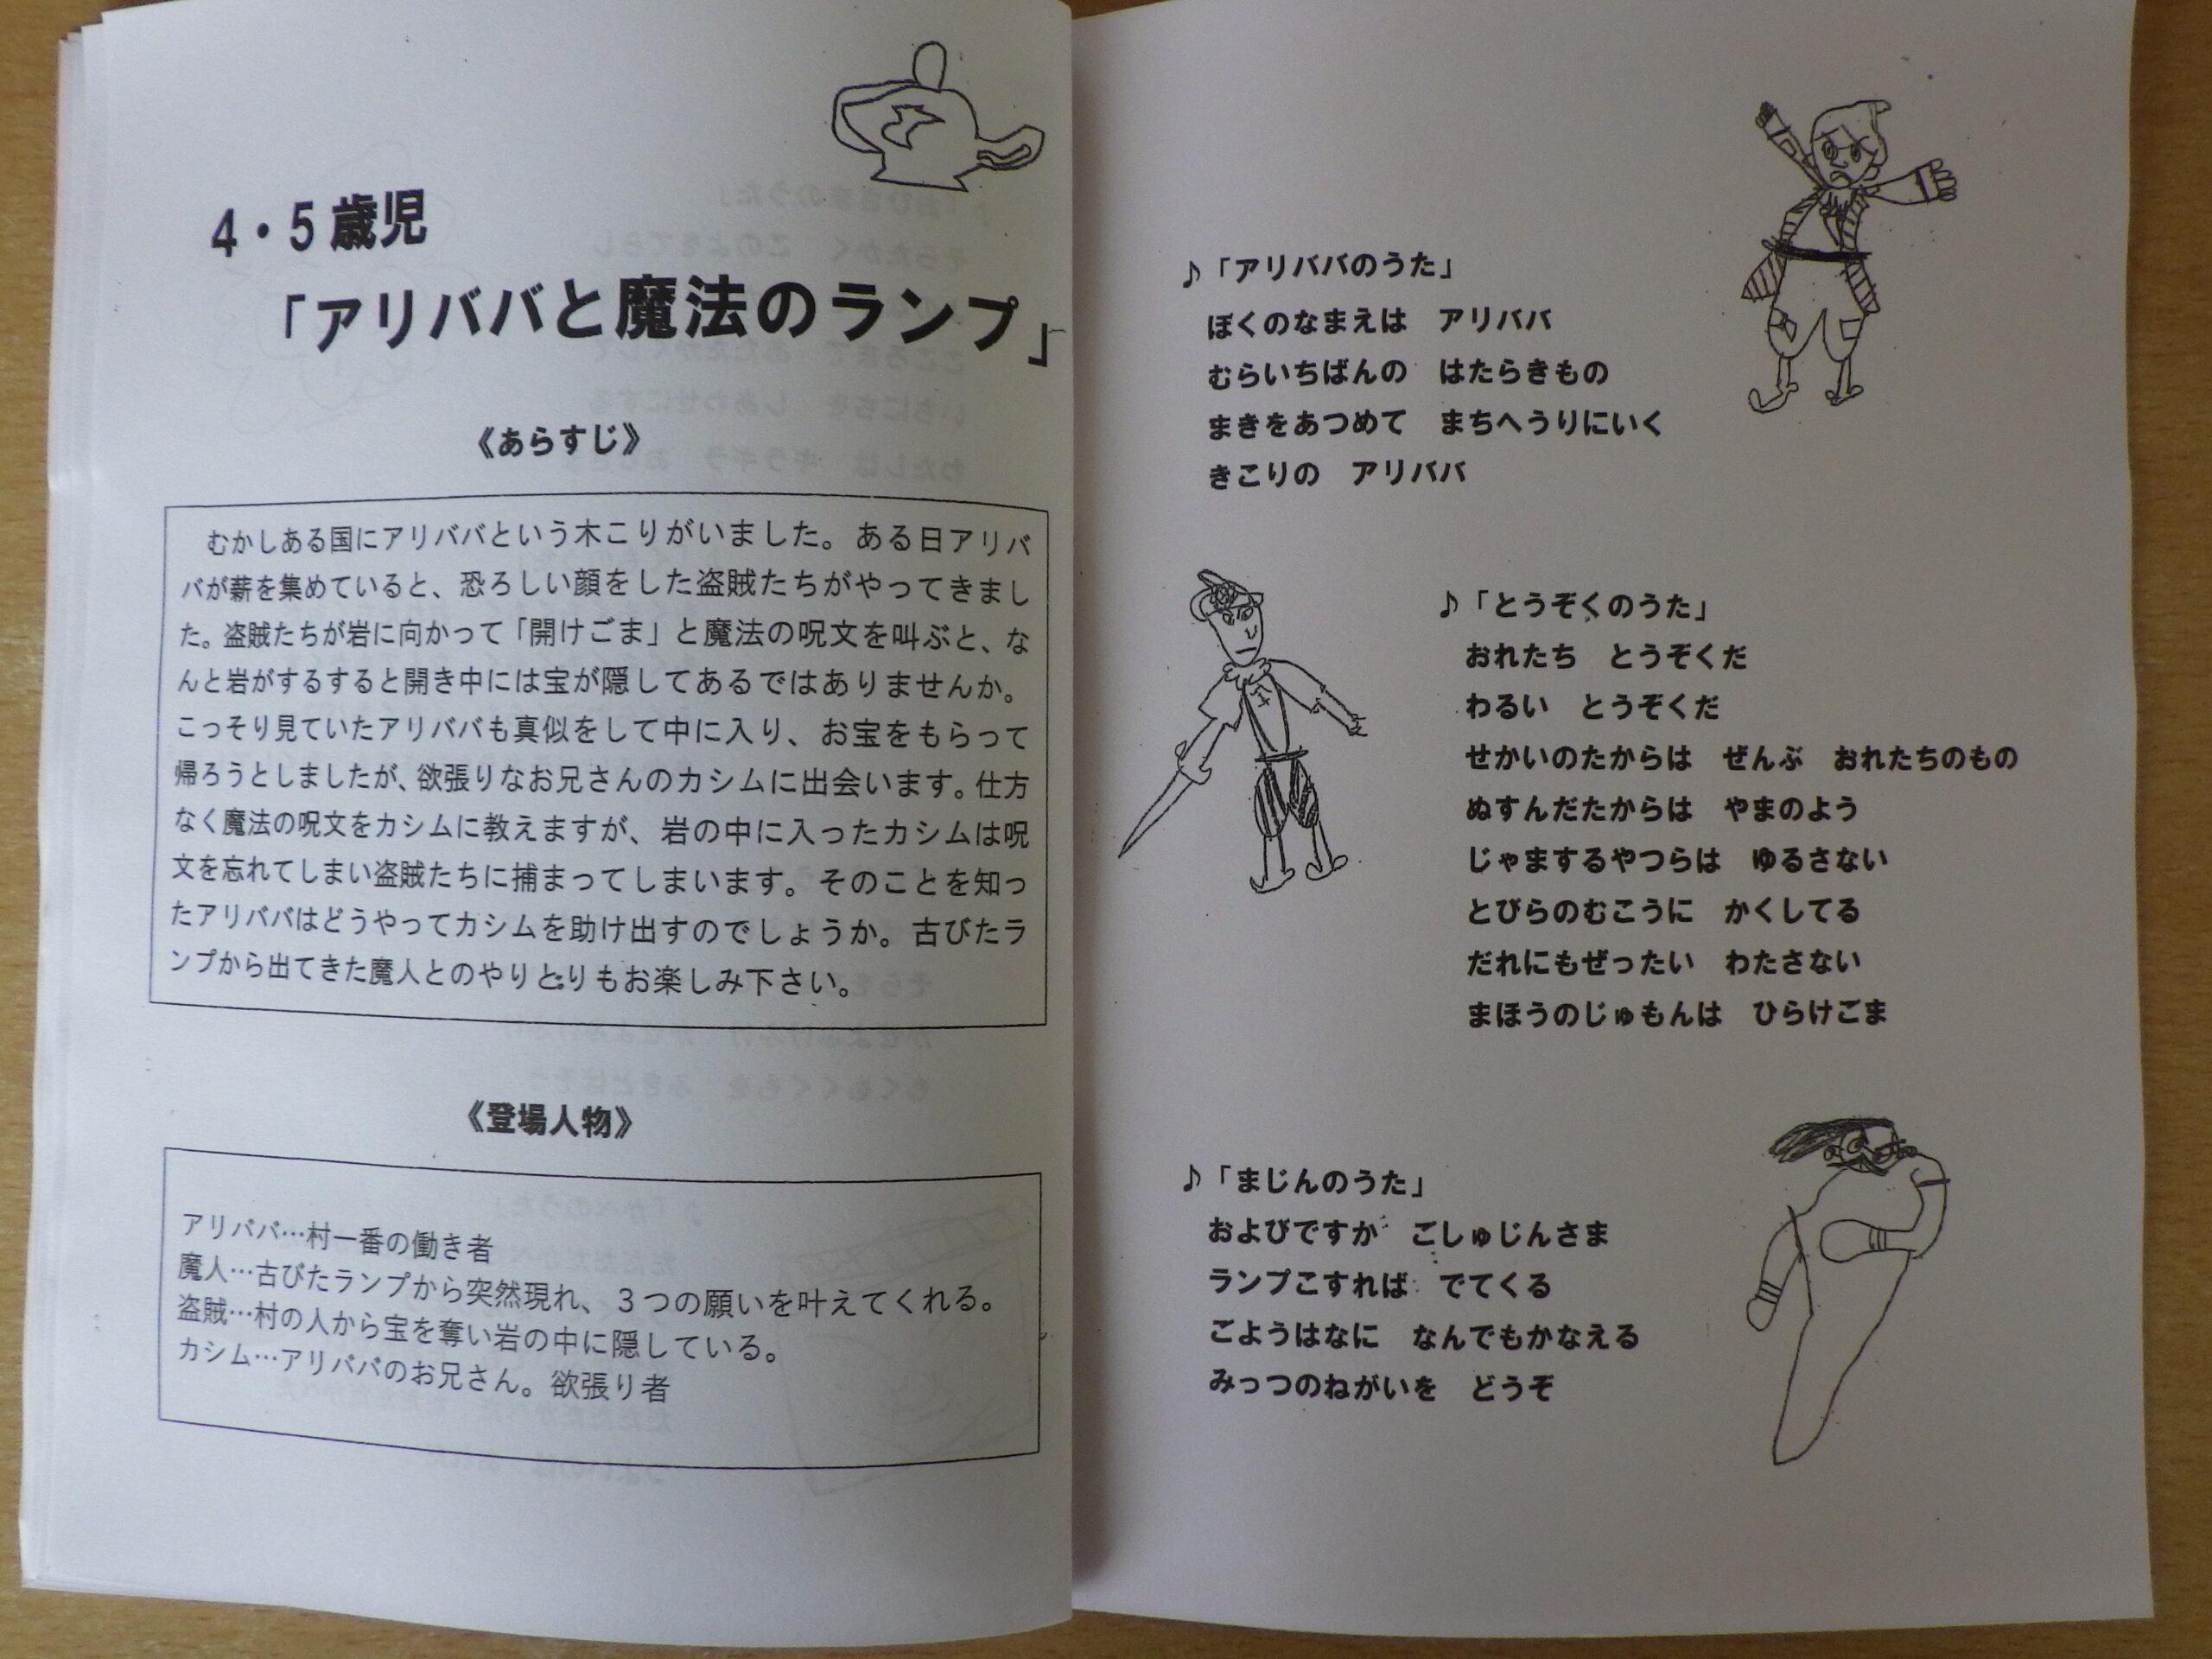 4・5歳児
「アリババと魔法のランプ」
《あらすじ》
むかしある国にアリババという木こりがいました。ある日アリバ
バが薪を集めていると、恐ろしい顔をした盗賊たちがやってきまし
た。盗賊たちが岩に向かって「開けごま」と魔法の呪文を叫ぶと、な
んと岩がするすると開き中には宝が隠してあるではありませんか。
こっそり見ていたアリババも真似をして中に入り、お宝をもらって
帰ろうとしましたが、欲張りなお兄さんのカシムに出会います。仕方
なく魔法の呪文をカシムに教えますが、岩の中に入ったカシムは呪
文を忘れてしまい盗賊たちに捕まってしまいます。そのことを知っ
たアリババはどうやってカシムを助け出すのでしょうか。古びたラ
ンプから出てきた魔人とのやりとりもお楽しみ下さい。
《登場人物》
アリババ…村一番の働き者
魔人…古びたランプから突然現れ、３つの願いを叶えてくれる。
盗賊…村の人から宝を奪い岩の中に隠している。
カシム…アリババのお兄さん。欲張り者
♪「アリババのうた」
ぼくのなまえは　アリババ
むらいちばんの　はたらきもの
まきをあつめて　まちへうりにいく
きこりの　アリババ
♪「とうぞくのうた」
おれたち　とうぞくだ
わるい　とうぞくだ
せかいのたからは　ぜんぶ　おれたちのもの
ぬすんだたからは　やまのよう
じゃまするやつらは　ゆるさない
とびらのむこうに　かくしてる
だれにもぜったい　わたさない
まほうのじゅもんは　ひらけごま
♪「まじんのうた」
およびですか　ごしゅじんさま
ランプこすれば　でてくる
ごようはなに　なんでもかなえる
みっつのねがいを　どうぞ